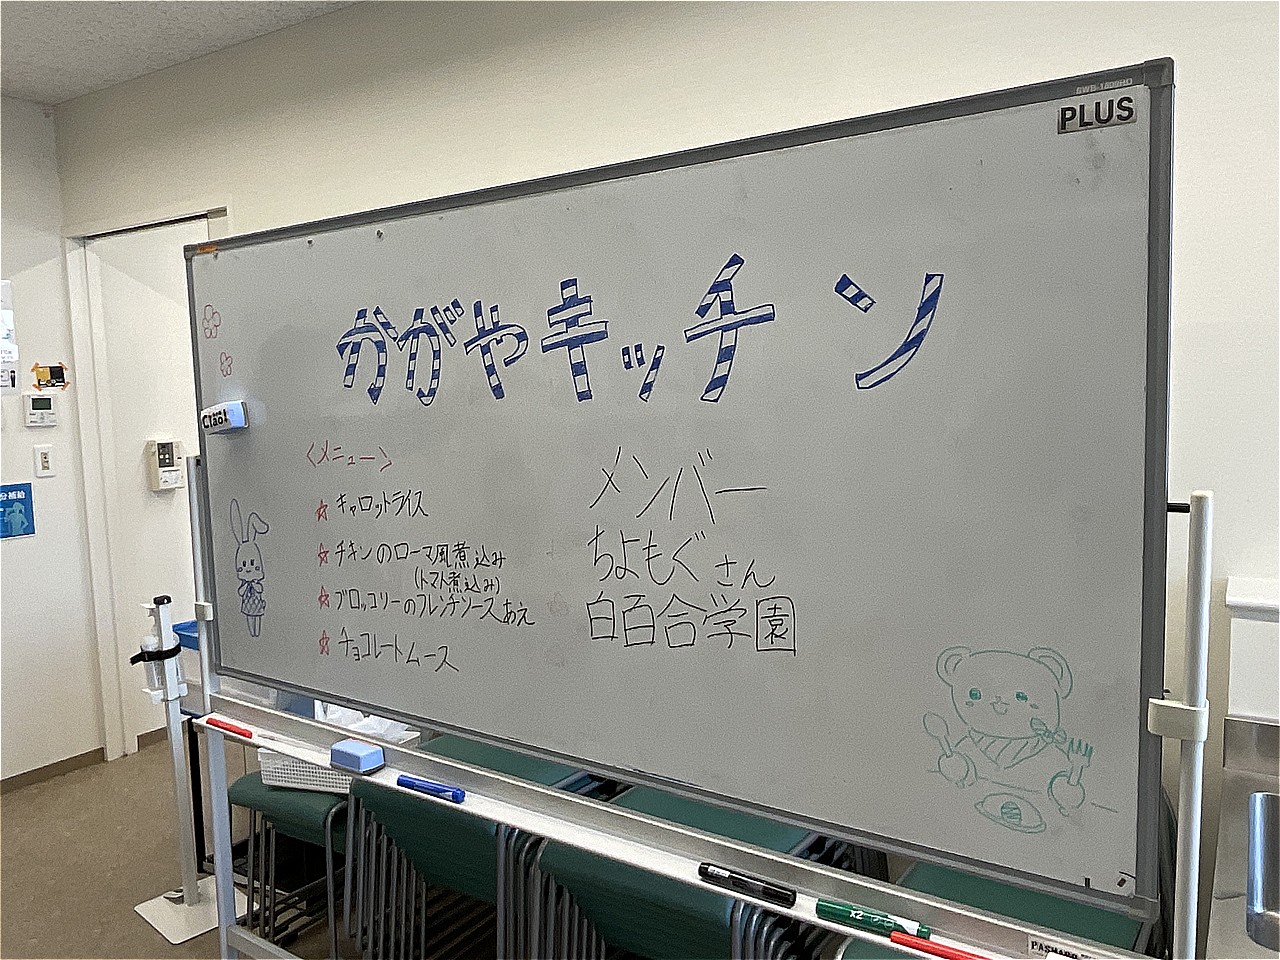 PLUS
かがやキッチン
Ciao!
<メニュー>
☆ キャロットライス
☆ チキンのローマ風煮込み
(トマト煮込み)
☆ ブロッコリーのフレンチソースあえ
☆ チョコレートムース
メンバー
ちよもぐさん
白百合学園
分補給
x2